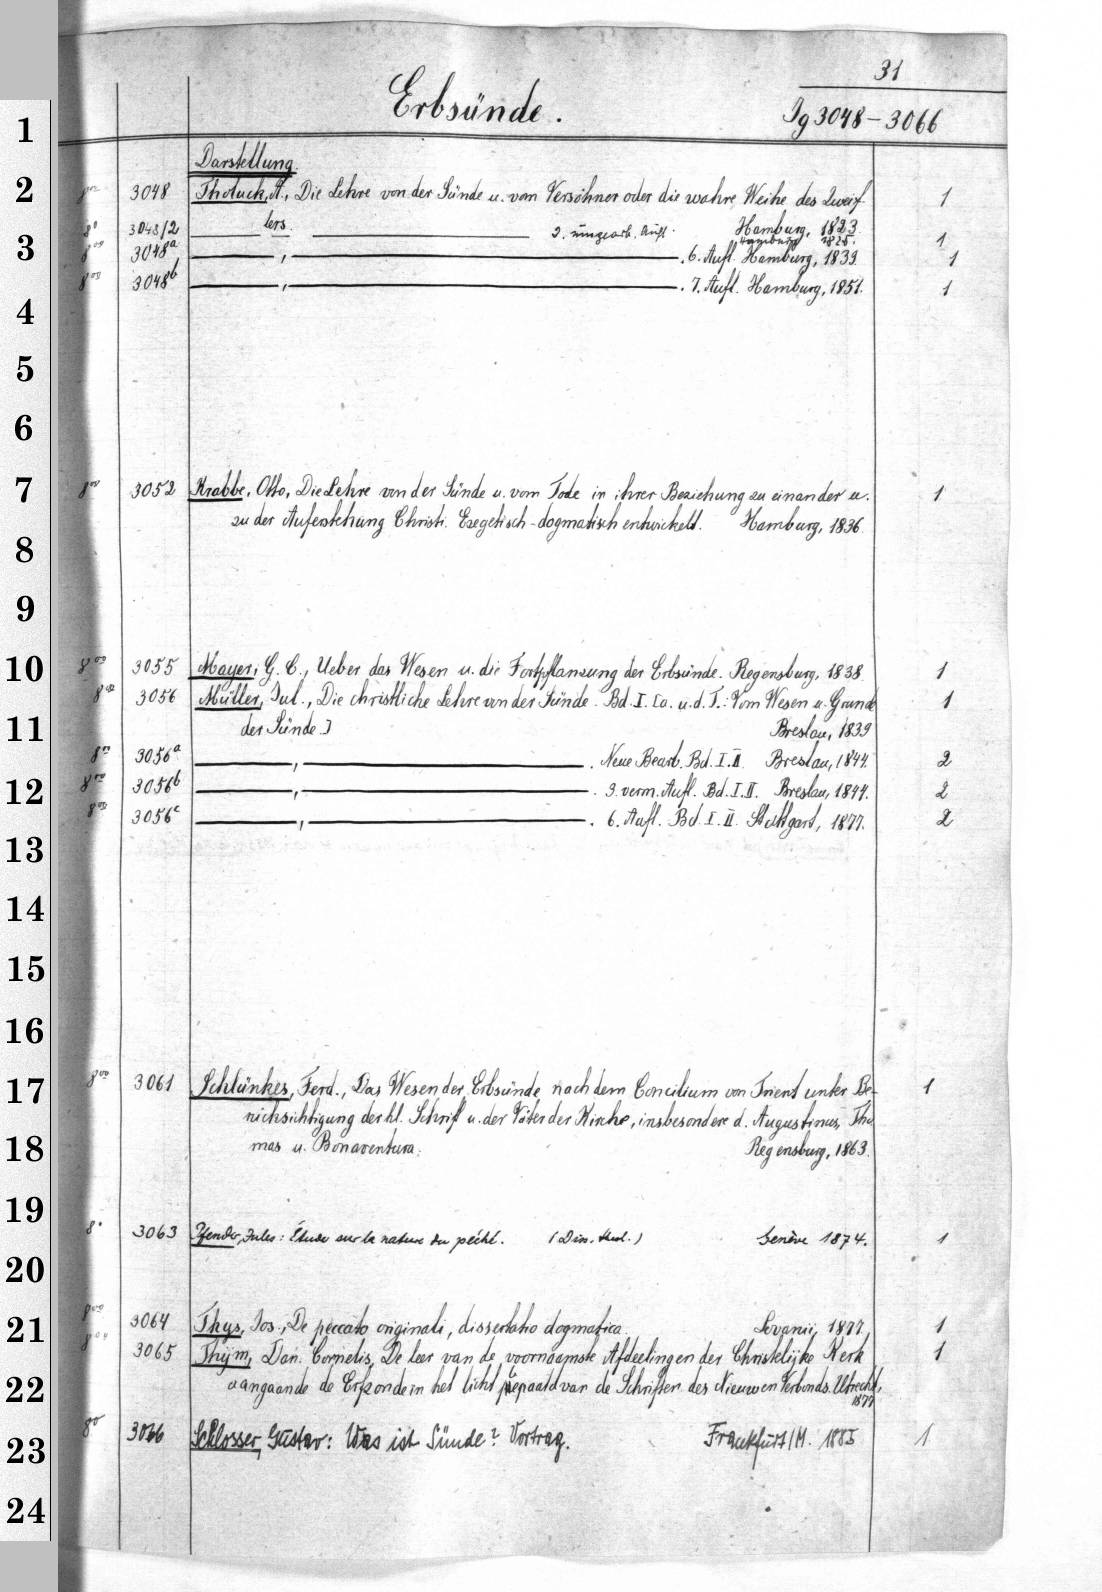 31
Erbsünde. Ig 3048-3066
1
Darstellung.
2 8vo 3048 Tholuck, A., Die Lehre von der Sünde u. vom Versöhner oder die wahre Weihe des Zweif- 1
lers. Hamburg, 1823.
8° 3048/2 2. umgearb. Aufl. Hamburg 1825. 1
3 8vo 3048a —,— . 6. Aufl. Hamburg, 1839. 1
8vo 3048b —,— . 7. Aufl. Hamburg, 1851. 1
4
5
6
7 8vo 3052 Krabbe, Otto, Die Lehre von der Sünde u. vom Tode in ihrer Beziehung zu einander u. 1
zu der Auferstehung Christi. Exegetisch-dogmatisch entwickelt. Hamburg, 1836.
8
9
10 8vo 3055 Mayer, G. C., Ueber das Wesen u. die Fortpflanzung der Erbsünde. Regensburg, 1838. 1
8vo 3056 Müller, Jul., Die christliche Lehre von der Sünde. Bd. I. [a. u. d. T.: Vom Wesen u. Grunde 1
11 der Sünde.] Breslau, 1839
8vo 3056a —,— . Neue Bearb. Bd. I. II. Breslau, 1844. 2
12 8vo 3056b —,— . 3. verm. Aufl. Bd. I. II. Breslau, 1849. 2
8vo 3056c —,— . 6. Aufl. Bd. I. II. Stuttgart, 1877. 2
13
14
15
16
17 8vo 3061 Schlünkes, Ferd., Das Wesen der Erbsünde nach dem Concilium von Trient unter Be- 1
rücksichtigung der hl. Schrift u. der Väter der Kirche, insbesondere d. Augustinus, Tho-
18 mas u. Bonaventura. Regensburg, 1863.
19 8° 3063 Pfender, Jules: Étude sur la nature du péché. (Diss. theol.) Genève 1874. 1
20
21 8vo 3064 Thys, Jos., De peccato originali, dissertatio dogmatica. Lovanii, 1877. 1
8vo 3065 Thijm, Dan. Cornelis, De leer van de voornaamste Afdeelingen der Christelijke Kerk 1
22 aangaande de Erfzonde in het licht bepaald van de Schriften des Nieuwen Verbonds. Utrecht,
1877
23 8° 3066 Schlosser, Gustav: Was ist Sünde? Vortrag. Frankfurt/M. 1885 1
24